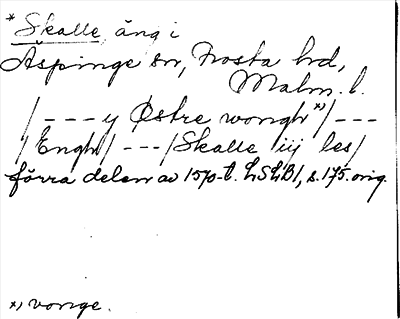 *Skalle, äng i
Äspinge sn, Frosta hrd,
Malm. l.
/ --- y Østre wongh *) / ---
/ Engh / --- / Skalle iij les /
förra delen av 1570-t. LSLB1, s. 175. orig.
*) vonge.